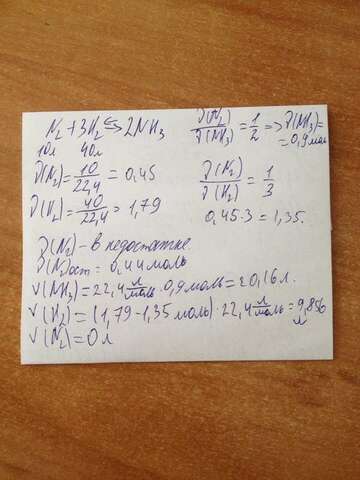 N₂ + 3H₂ ⇆ 2NH₃
10л 40л
ν(N₂) = 10/22,4 = 0,45
ν(H₂) = 40/22,4 = 1,79
ν(N₂)/ν(NH₃) = 1/2 => ν(NH₃) =
= 0,9 моль
ν(N₂)/ν(H₂) = 1/3
0,45·3 = 1,35.
ν(N₂) – в недостатке
ν(N₂)ост = 0,44 моль
V(NH₃) = 22,4 л/моль · 0,9 моль = 20,16 л.
V(H₂) = (1,79 - 1,35 моль) · 22,4 л/моль = 9,856
V(N₂) = 0 л